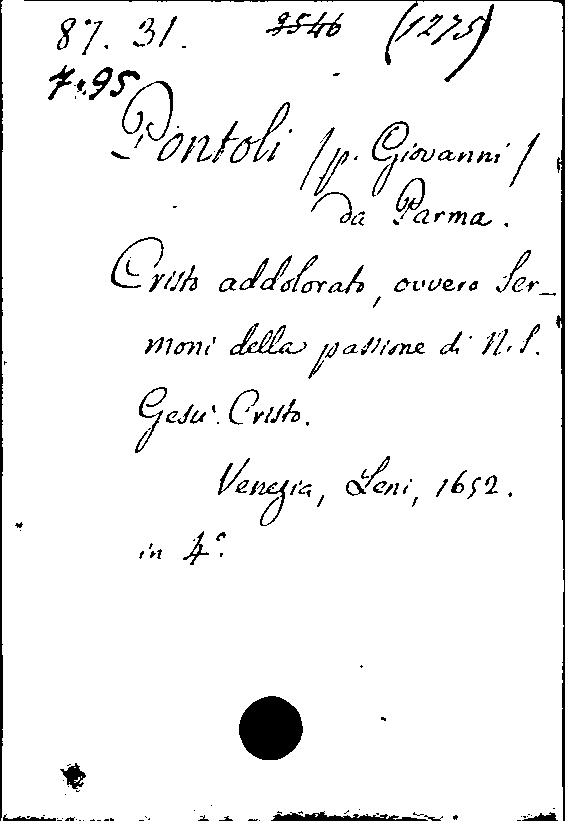 87. 31. 2546 (1275)
7.95
Pontoli (p. Giovanni)
da Parma.
Cristo addolorato, ovvero Ser-
moni della passione di N. S.
Gesù Cristo.
Venezia, Leni, 1652.
in 4°.